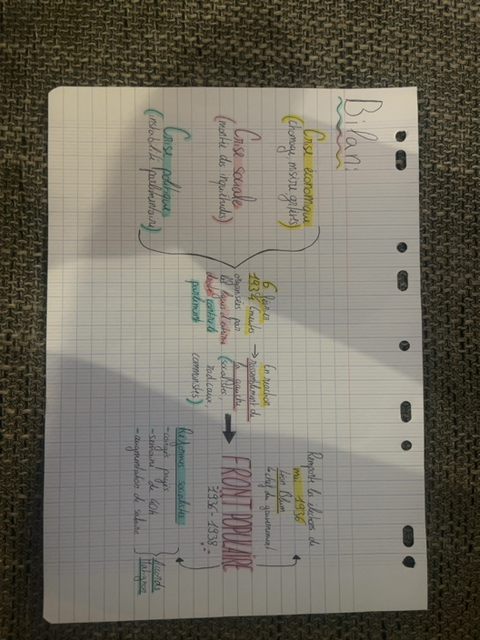 Bilan:
Crise économique
(chômage, misère, grèves)
Crise sociale
(montée des inquiétudes)
Crise politique
(instabilité parlementaire)
6 février
1934: émeutes
organisées par
les ligues d'extrême
droite contre le
parlement
En réaction
→ rassemblement de
la gauche
(socialistes,
radicaux,
communistes)
FRONT POPULAIRE
1936-1938
Remporte les élections de
mai 1936
Léon Blum
chef du gouvernement
Réformes sociales
- congés payés
- semaine de 40h
- augmentation de salaire
Accords
Matignon